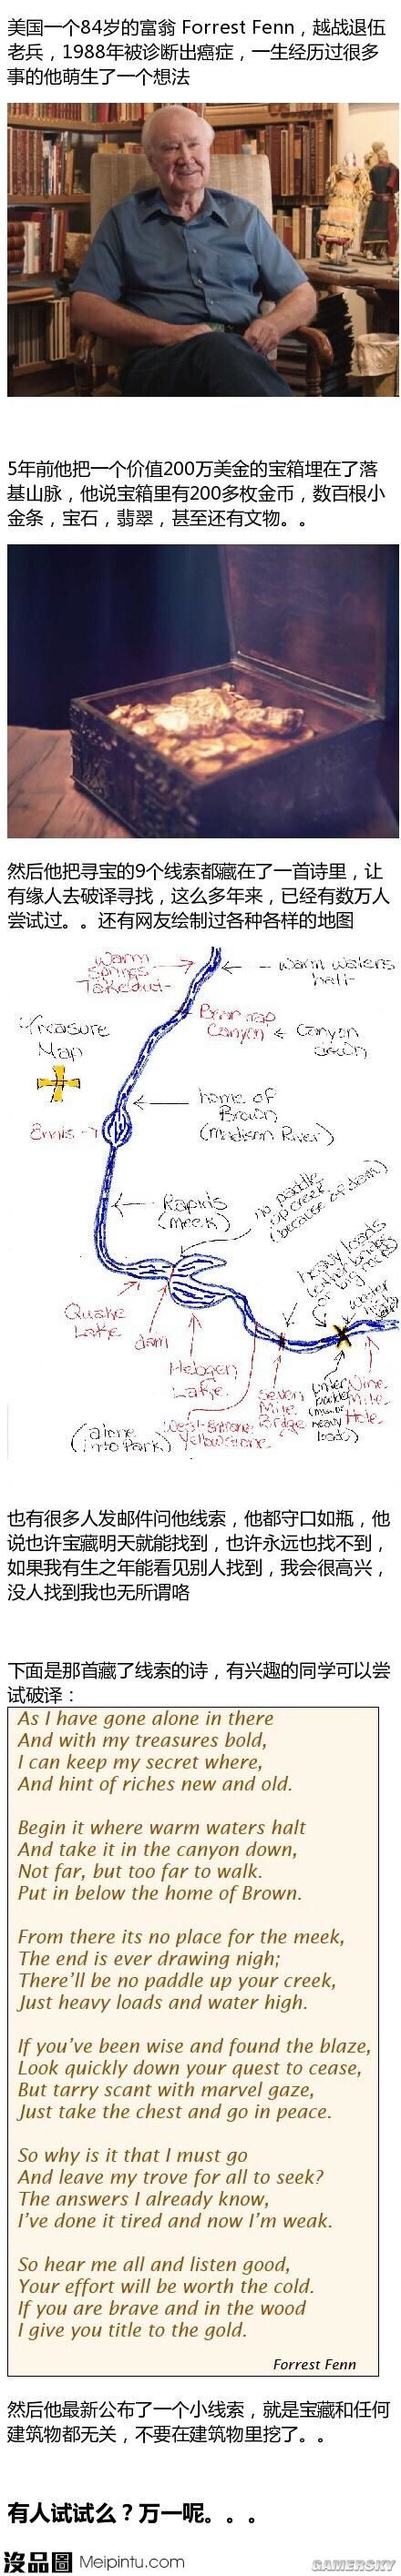 美国一个84岁的富翁 Forrest Fenn，越战退伍
老兵，1988年被诊断出癌症，一生经历过很多
事的他萌生了一个想法
5年前他把一个价值200万美金的宝箱埋在了落
基山脉，他说宝箱里有200多枚金币，数百根小
金条，宝石，翡翠，甚至还有文物。。
然后他把寻宝的9个线索都藏在了一首诗里，让
有缘人去破译寻找，这么多年来，已经有数万人
尝试过。。还有网友绘制过各种各样的地图
Warm
Springs
Takeout-
Warm waters
halt-
Bear trap
Canyon
Canyon
down
Treasure
Map
home of
Brown
(Madison River)
Ennis
Rapids
(meek)
no paddle
up creek
(because of dam)
heavy loads
water
high
Quake
Lake
dam
Hebgen
Lake
Seven
Mile
Bridge
Nine
Mile
Hole
heavy
loads)
(alone
into Park)
West Entrance
Yellowstone
也有很多人发邮件问他线索，他都守口如瓶，他
说也许宝藏明天就能找到，也许永远也找不到，
如果我有生之年能看见别人找到，我会很高兴，
没人找到我也无所谓咯
下面是那首藏了线索的诗，有兴趣的同学可以尝
试破译：
As I have gone alone in there
And with my treasures bold,
I can keep my secret where,
And hint of riches new and old.
Begin it where warm waters halt
And take it in the canyon down,
Not far, but too far to walk.
Put in below the home of Brown.
From there its no place for the meek,
The end is ever drawing nigh;
There'll be no paddle up your creek,
Just heavy loads and water high.
If you've been wise and found the blaze,
Look quickly down your quest to cease,
But tarry scant with marvel gaze,
Just take the chest and go in peace.
So why is it that I must go
And leave my trove for all to seek?
The answers I already know,
I've done it tired and now I'm weak.
So hear me all and listen good,
Your effort will be worth the cold.
If you are brave and in the wood
I give you title to the gold.
Forrest Fenn
然后他最新公布了一个小线索，就是宝藏和任何
建筑物都无关，不要在建筑物里挖了。。
有人试试么？万一呢。。。
沒品圖 Meipintu.com
GAMERSKY